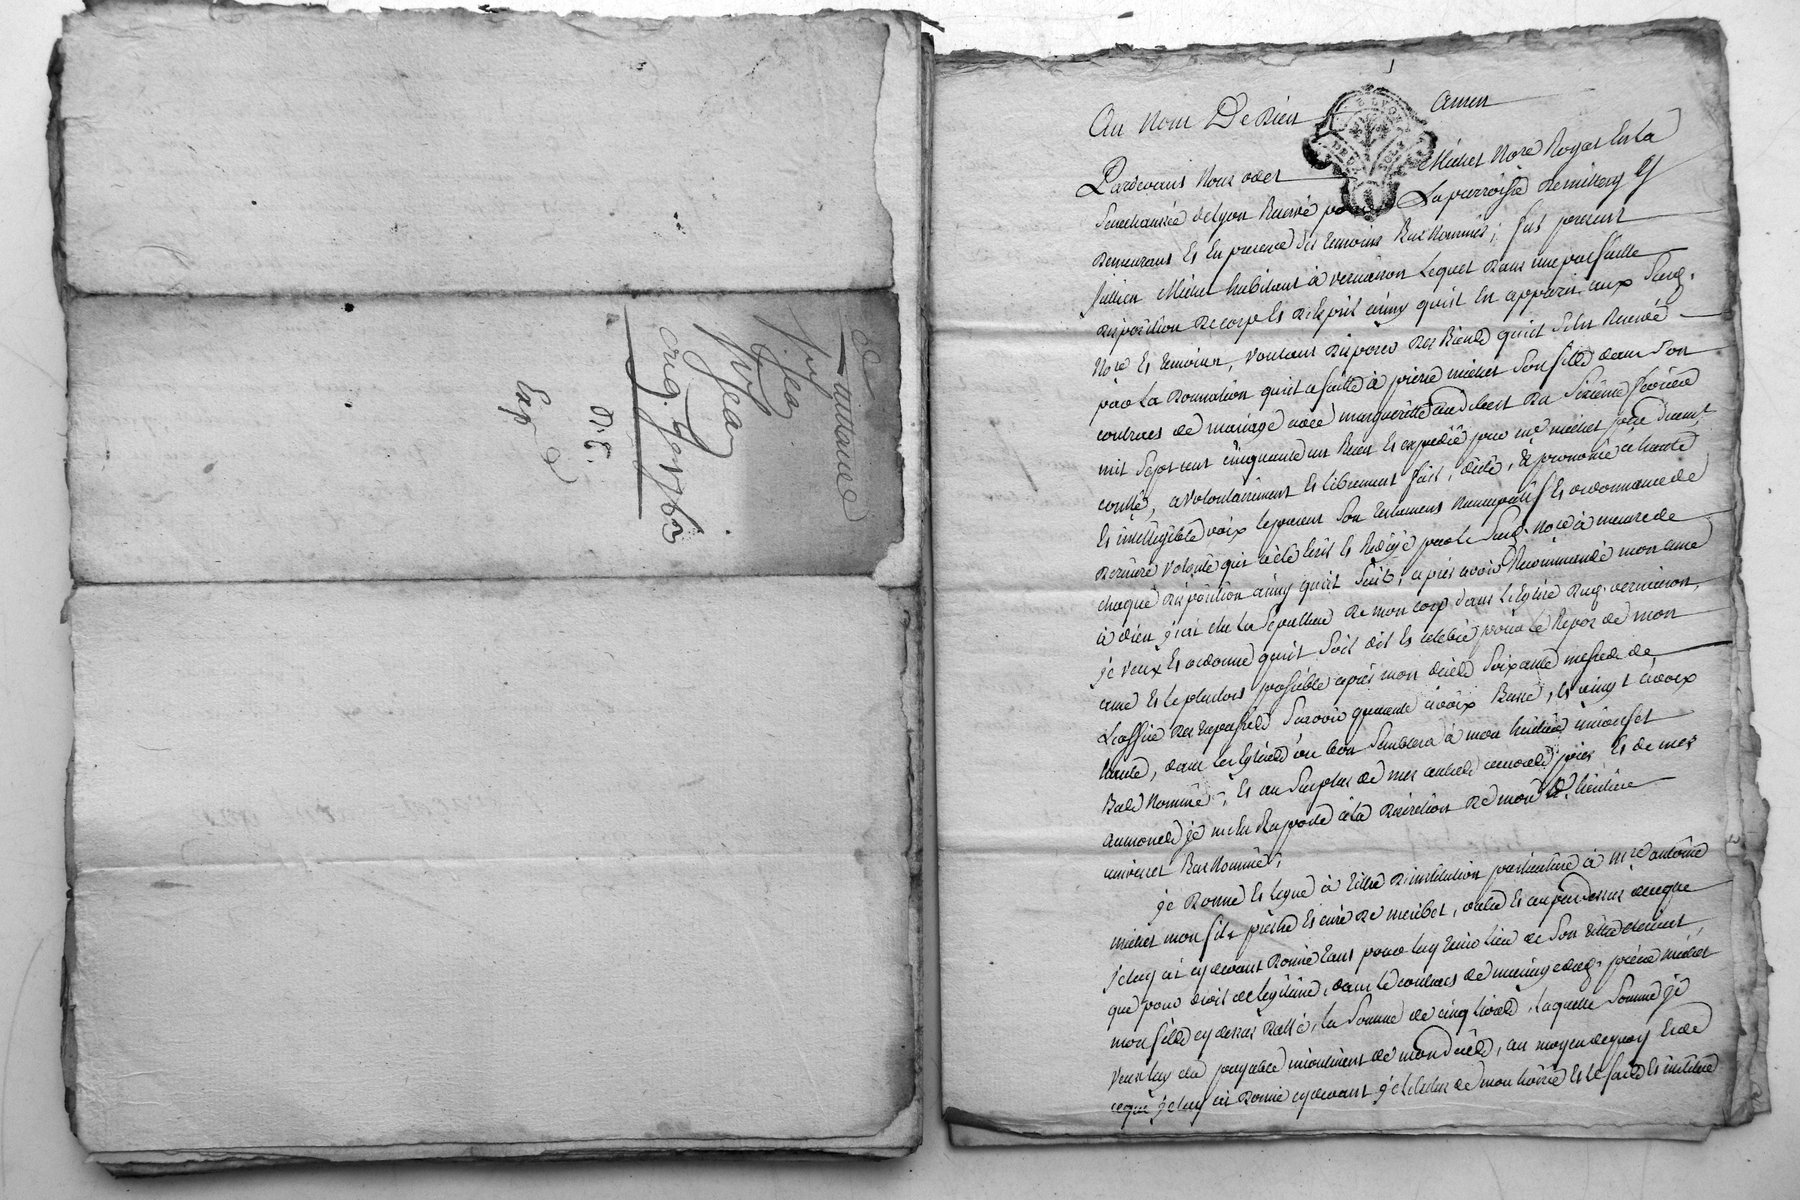 Quittance
orig.
D.E.
Au Nom De Dieu Amen
Pardevant Nous odet Michel No.re Royal En La
Senechaussée de Lyon Reservé pour La parroisse de millery y
Demeurant Et En presence des temoins Bas Nommés ; fut present
Jullien Michel habitant à vernaison Lequel dans une parfaitte
disposition de corps Et d'Esprit ainsy qu'il En apparu aux Susd.
No.re Et temoins, voulant disposer des Biens qu'il s'est Reservé
par La Donnation qu'il a faitte à pierre michel Son fils dans Son
contract de mariage avec margueritte du Sixieme fevrier
mil Sept cent cinquante un Receu Et expedié par me michel
controllé, a volontairement Et librement fait, dicté, & prononcé à haute
Et intelligible voix le present Son testament Nuncupatif Et ordonnance de
derniere volonté qui a été Ecrit Et Redigé par le Susd. No.re à mesure de
chaque disposition ainsy qu'il Suit ; après avoir Recommandé mon ame
à dieu j'ai élu La Sepulture de mon corps dans L'Eglise dud. vernaison,
je veux Et ordonne qu'il Soit dit Et celebré pour le Repos de mon
ame Et le plutost possible après mon décès Soixante messes de
L'office des trepassés Savoir quarante à voix Basse, Et vingt à voix
haute, dans les Eglises où bon Semblera à mon heritier universel
Bas Nommé ; Et au Surplus de mes autres œuvres pies Et de mes
aumones je m'En Rapporte à la discretion de mond. heritier
universel Bas Nommé ;
je donne Et legue à titre d'institution particuliere à m.re antoine
michel mon fils prêtre Et curé de meribel, outre Et aupardessus ceque
je luy ai cydevant donné tant pour luy tenir lieu de Son titre clerical,
que pour droit de legitime, dans le contract de mariage dud. pierre michel
mon fils cy dessus datté, la Somme de cinq livres, laquelle Somme je
veux luy être payable incontinent de mon décès, au moyen dequoy Et de
ceque je luy ai donné cydevant je l'exclus de mon hoirie Et le fais Et institue